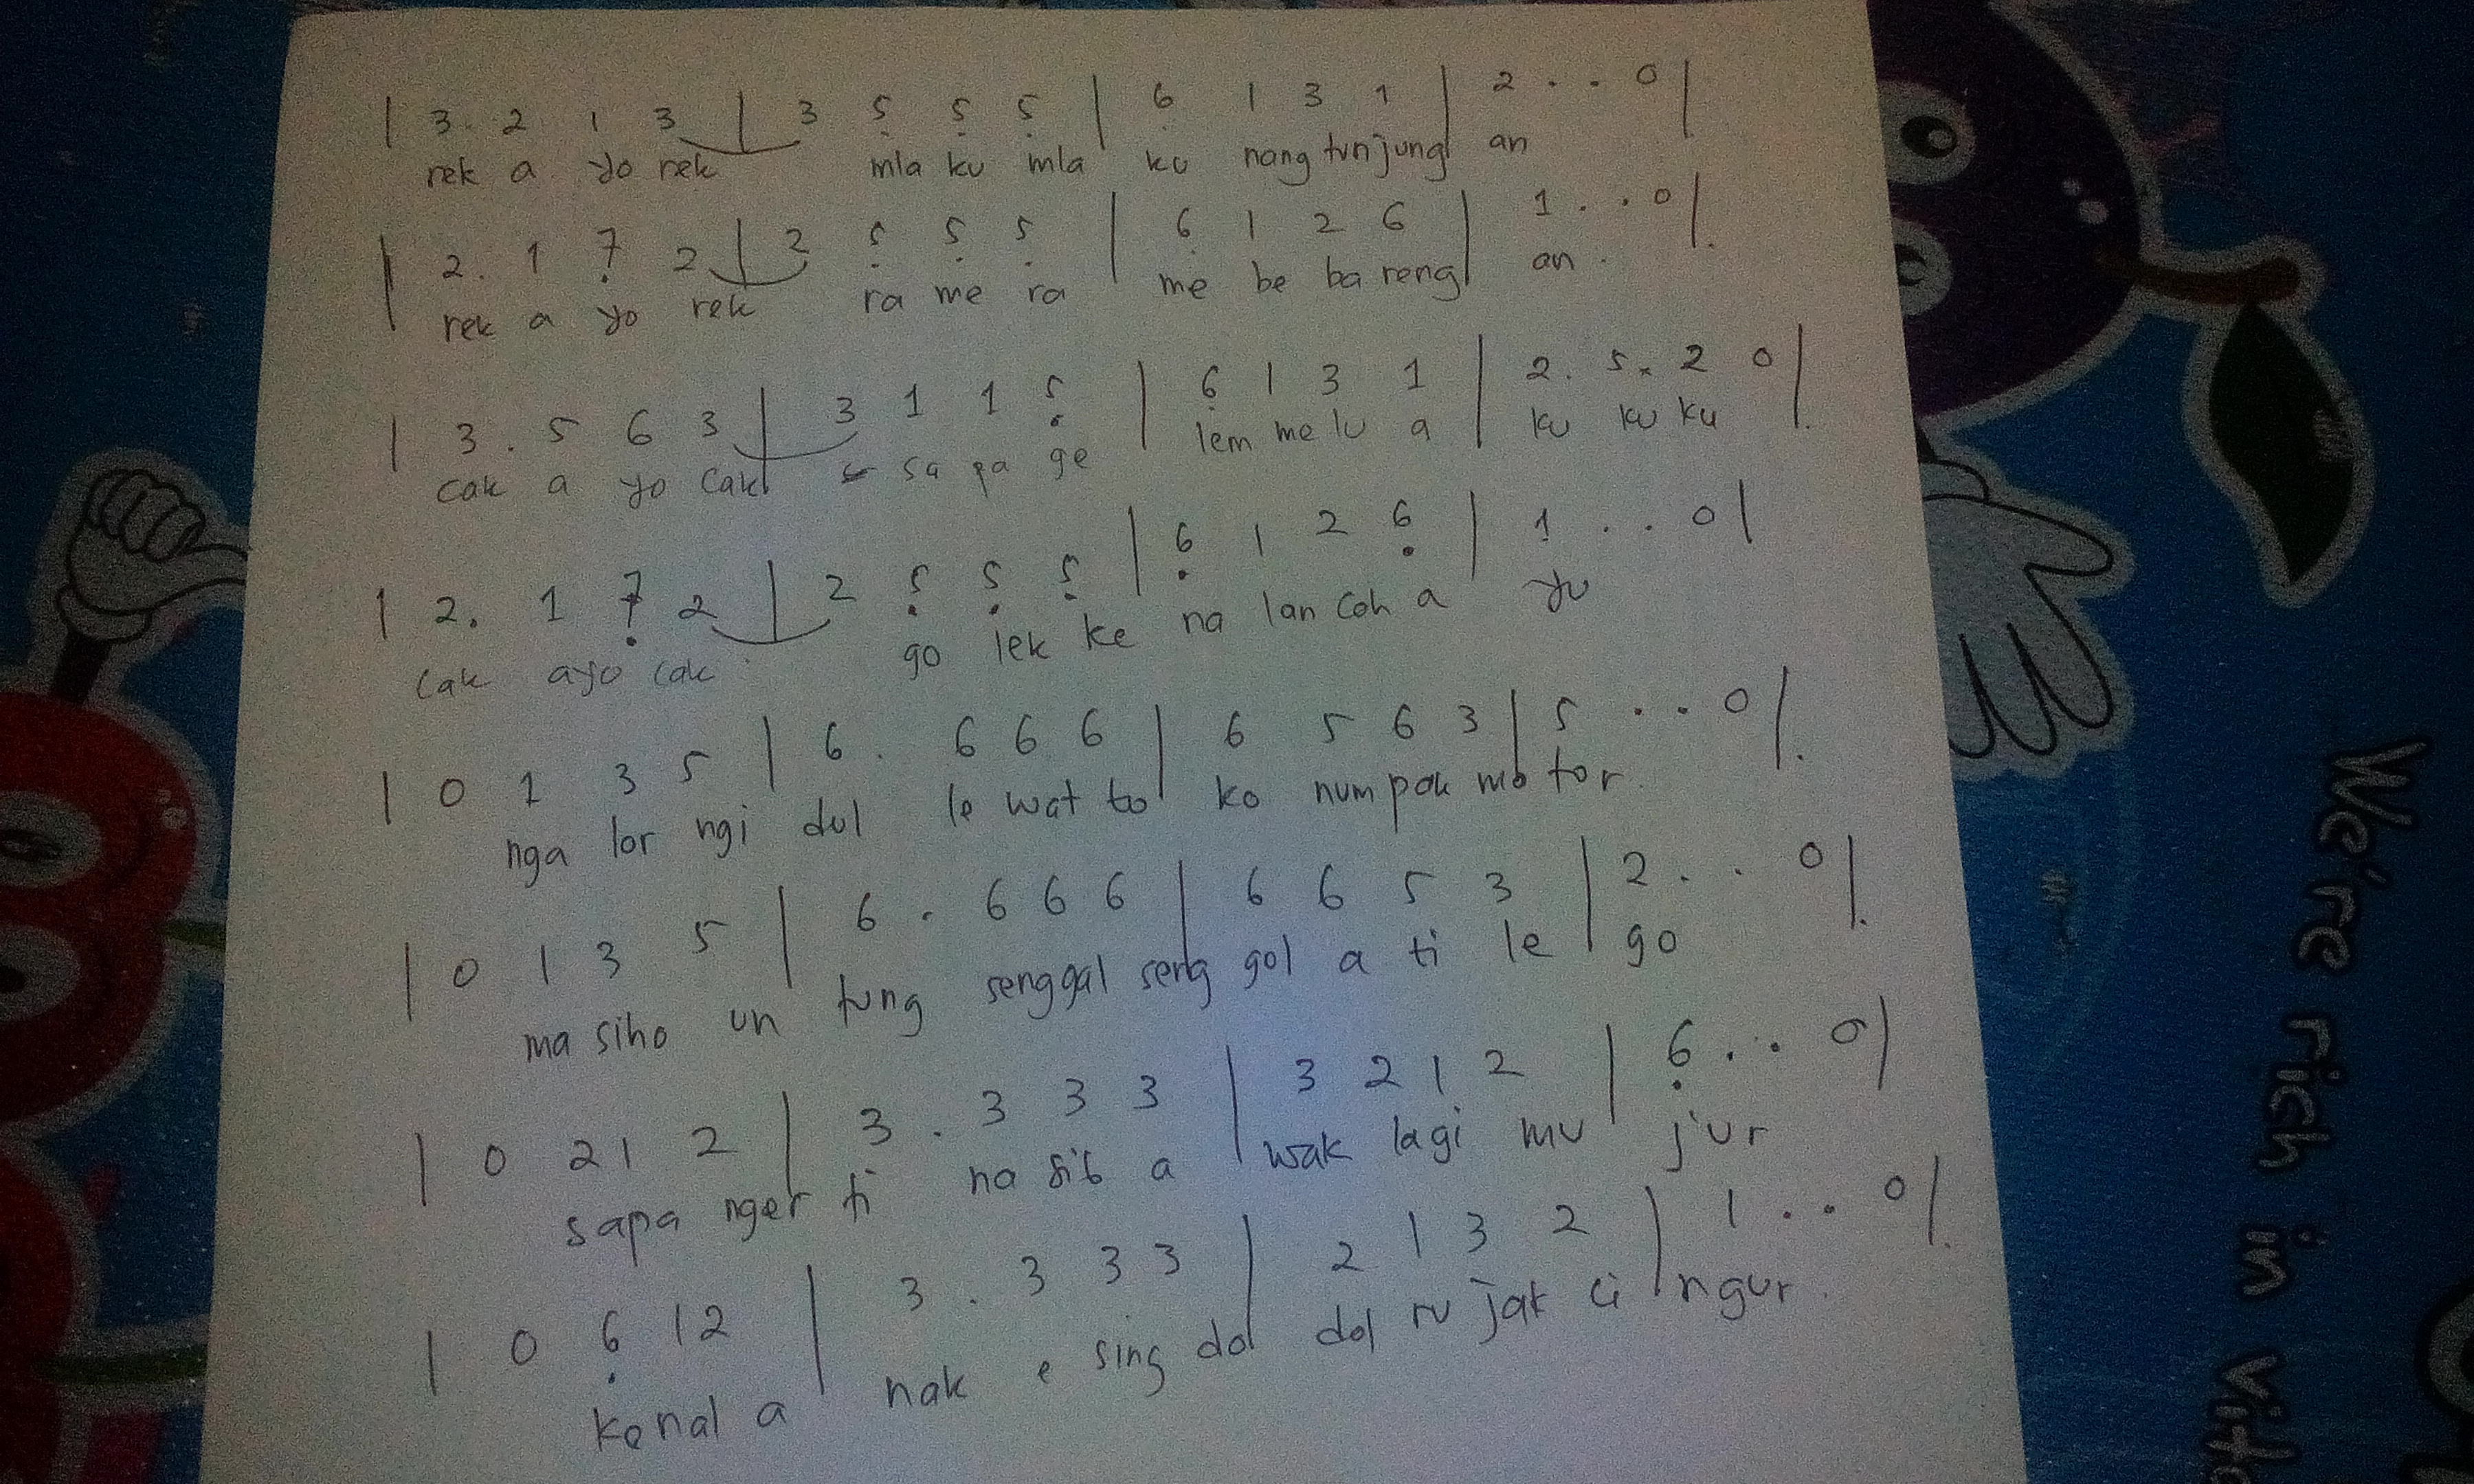 | 3. 2 1 3 | 3 5̣ 5̣ 5̣ | 6̣ 1 3 1 | 2 . . 0 |
rek a yo rek mla ku mla ku nang tunjung an
| 2. 1 7̣ 2 | 2 5̣ 5̣ 5̣ | 6̣ 1 2 6 | 1 . . 0 |
rek a yo rek ra me ra me be ba reng an
| 3 . 5 6 3 | 3 1 1 5̣ | 6̣ 1 3 1 | 2. 5. 2 0 |
cak a yo cak sa pa ge lem me lu a ku ku ku
| 2. 1 7̣ 2 | 2 5̣ 5̣ 5̣ | 6̣ 1 2 6̣ | 1 . . 0 |
cak ayo cak go lek ke na lan coh a yu
| 0 1 3 5 | 6 . 6 6 6 | 6 5 6 3 | 5 . . 0 |
nga lor ngi dul le wat to ko numpak mo tor
| 0 1 3 5 | 6 . 6 6 6 | 6 6 5 3 | 2 . . 0 |
ma siho un tung senggal seng gol a ti le go
| 0 21 2 | 3 . 3 3 3 | 3 2 1 2 | 6̣ . . 0 |
sapa nger ti na sib a wak lagi mu jur
| 0 6̣ 12 | 3 . 3 3 3 | 2 1 3 2 | 1 . . 0 |
kenal a nak e sing dol dol ru jak ci ngur
We're rich in vit